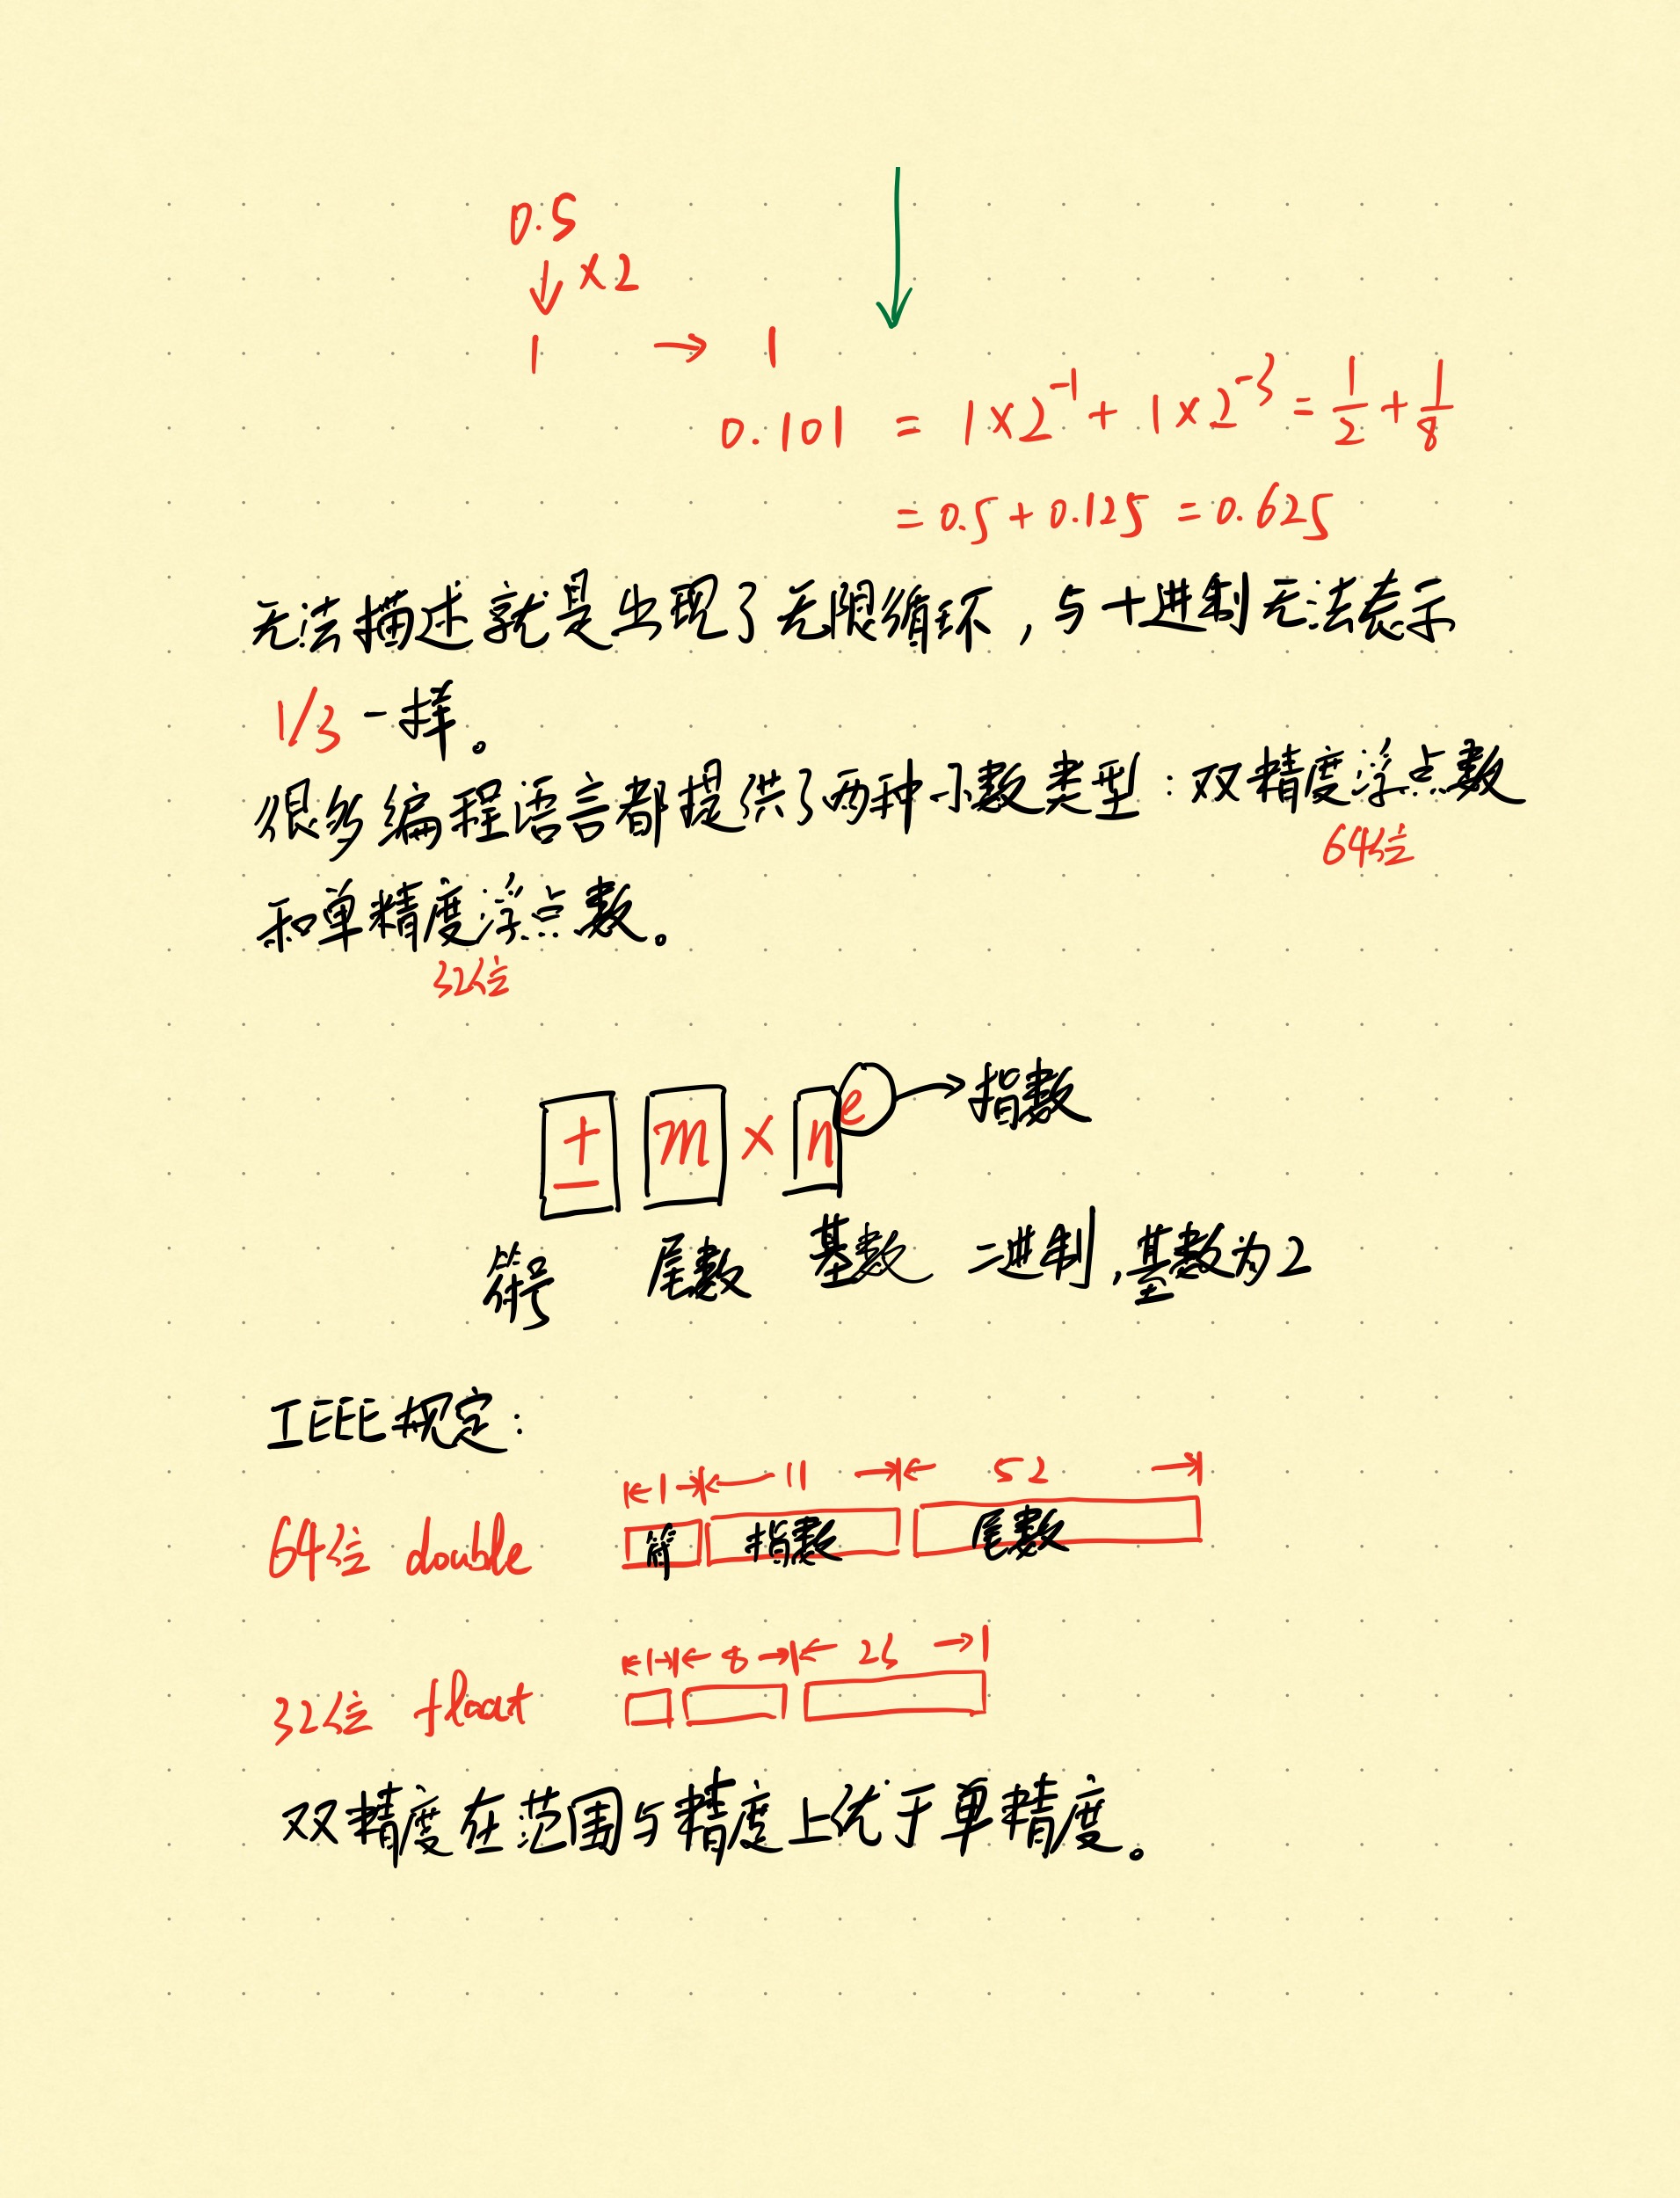 0.5
↓ ×2
1 → 1
0.101 = 1×2⁻¹ + 1×2⁻³ = 1/2 + 1/8
= 0.5 + 0.125 = 0.625
无法描述就是出现了无限循环，与十进制无法表示
1/3 一样。
很多编程语言都提供了两种小数类型：双精度浮点数
64位
和单精度浮点数。
32位
± m × nᵉ → 指数
符号 尾数 基数 二进制，基数为2
IEEE规定：
1 11 52
64位 double 符 指数 尾数
1 8 23
32位 float
双精度在范围与精度上优于单精度。